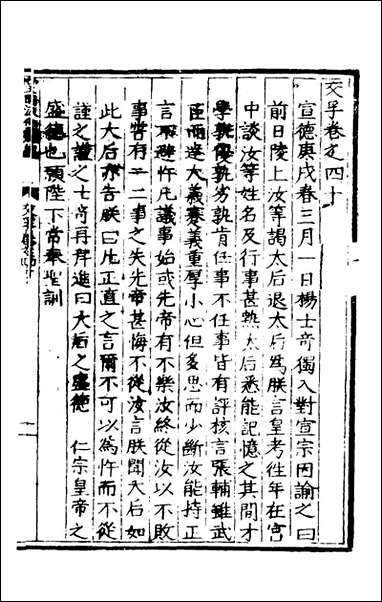 交孚卷之四十
宣德庚戌春三月一日楊士奇獨入對宣宗因諭之曰
前日陵上汝等謁太后退太后爲朕言皇考往年在宮
中談汝等姓名及行事甚熟太后悉能記憶之其間才
學孰優孰劣孰肯任事不任事皆有評核言張輔雖武
臣而達大義蹇義重厚小心但多思而少斷汝能持正
言不避忤凡議事始或先帝有不樂汝終從汝以不敗
事嘗有一二事之失先帝甚悔不從汝言朕聞太后如
此太后亦告朕曰凡正直之言爾不可以爲忤而不從
謹之謹之士奇再拜進曰太后之盛德 仁宗皇帝之
盛德也願陛下常奉聖訓